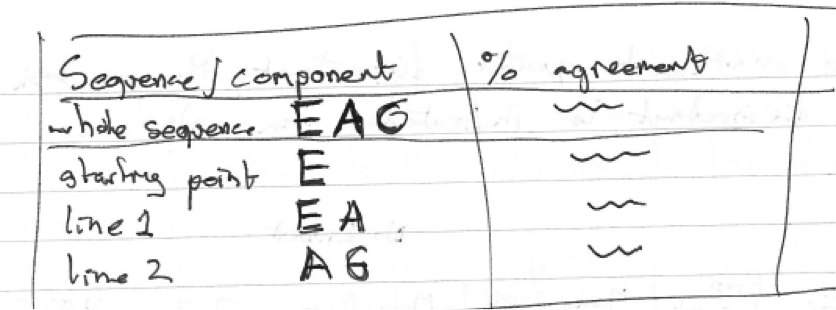 Sequence/component % agreement
whole sequence E A G
starting point E
line 1 E A
line 2 A G